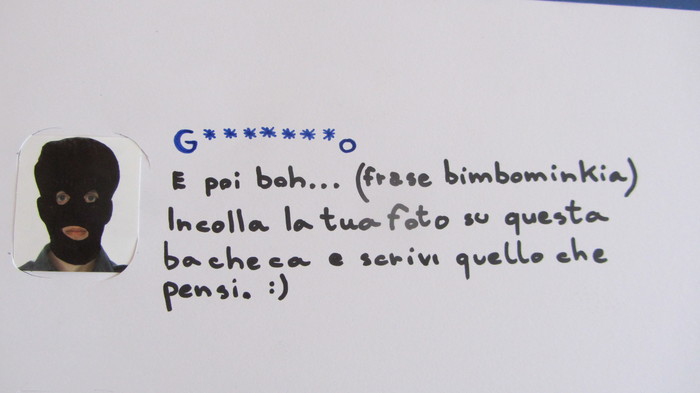 G*******o
E poi boh... (frase bimbominkia)
Incolla la tua foto su questa
bacheca e scrivi quello che
pensi. :)